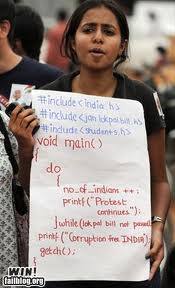 #include<india.h>
#include<jan lokpal bill.h>
#include<students.h>
void main()
{
do
{
no_of_indians ++;
printf("Protest
continues");
}while(lok pal bill not passed)
printf("Corruption free INDIA");
getch();
}
WIN!
failblog.org